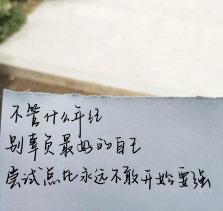 不管什么年纪
别辜负最好的自己
尝试点比永远不敢开始要强